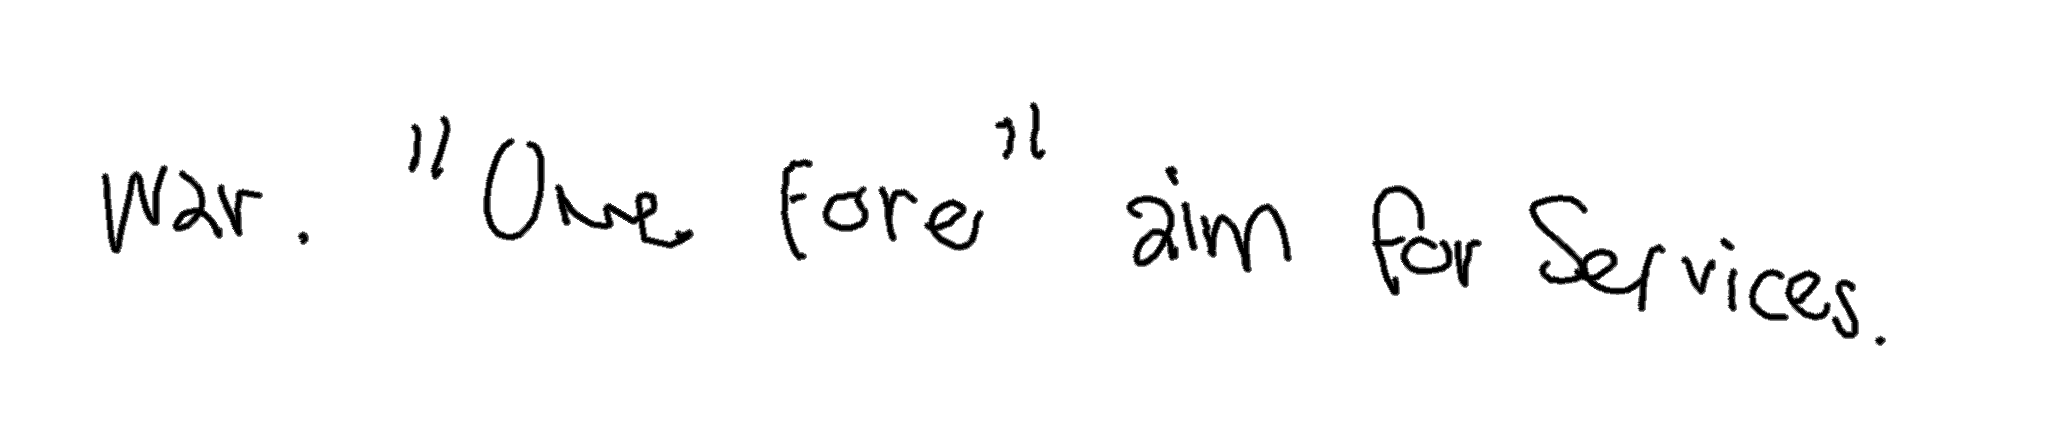 war. "One Fore" aim for Services.